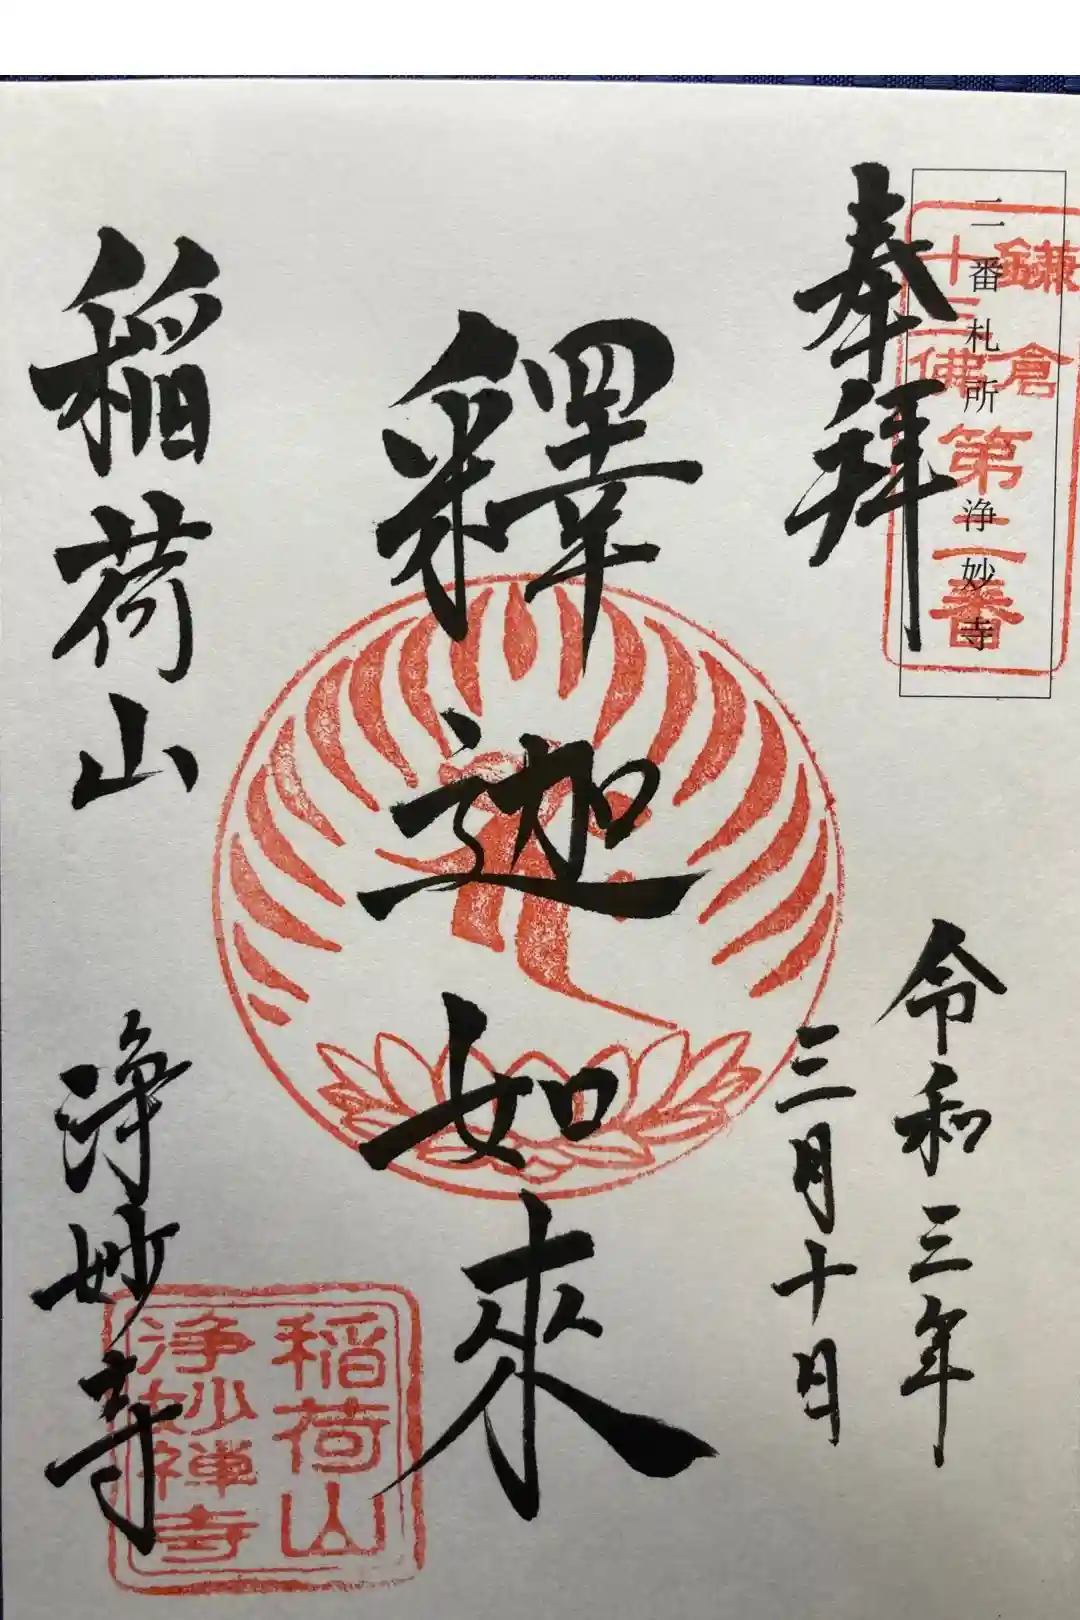 二番札所　浄妙寺
鎌倉
十三佛
第二番
奉拜
令和三年
三月十日
釋迦如來
稲荷山
浄妙寺
稲荷山
浄妙禅寺